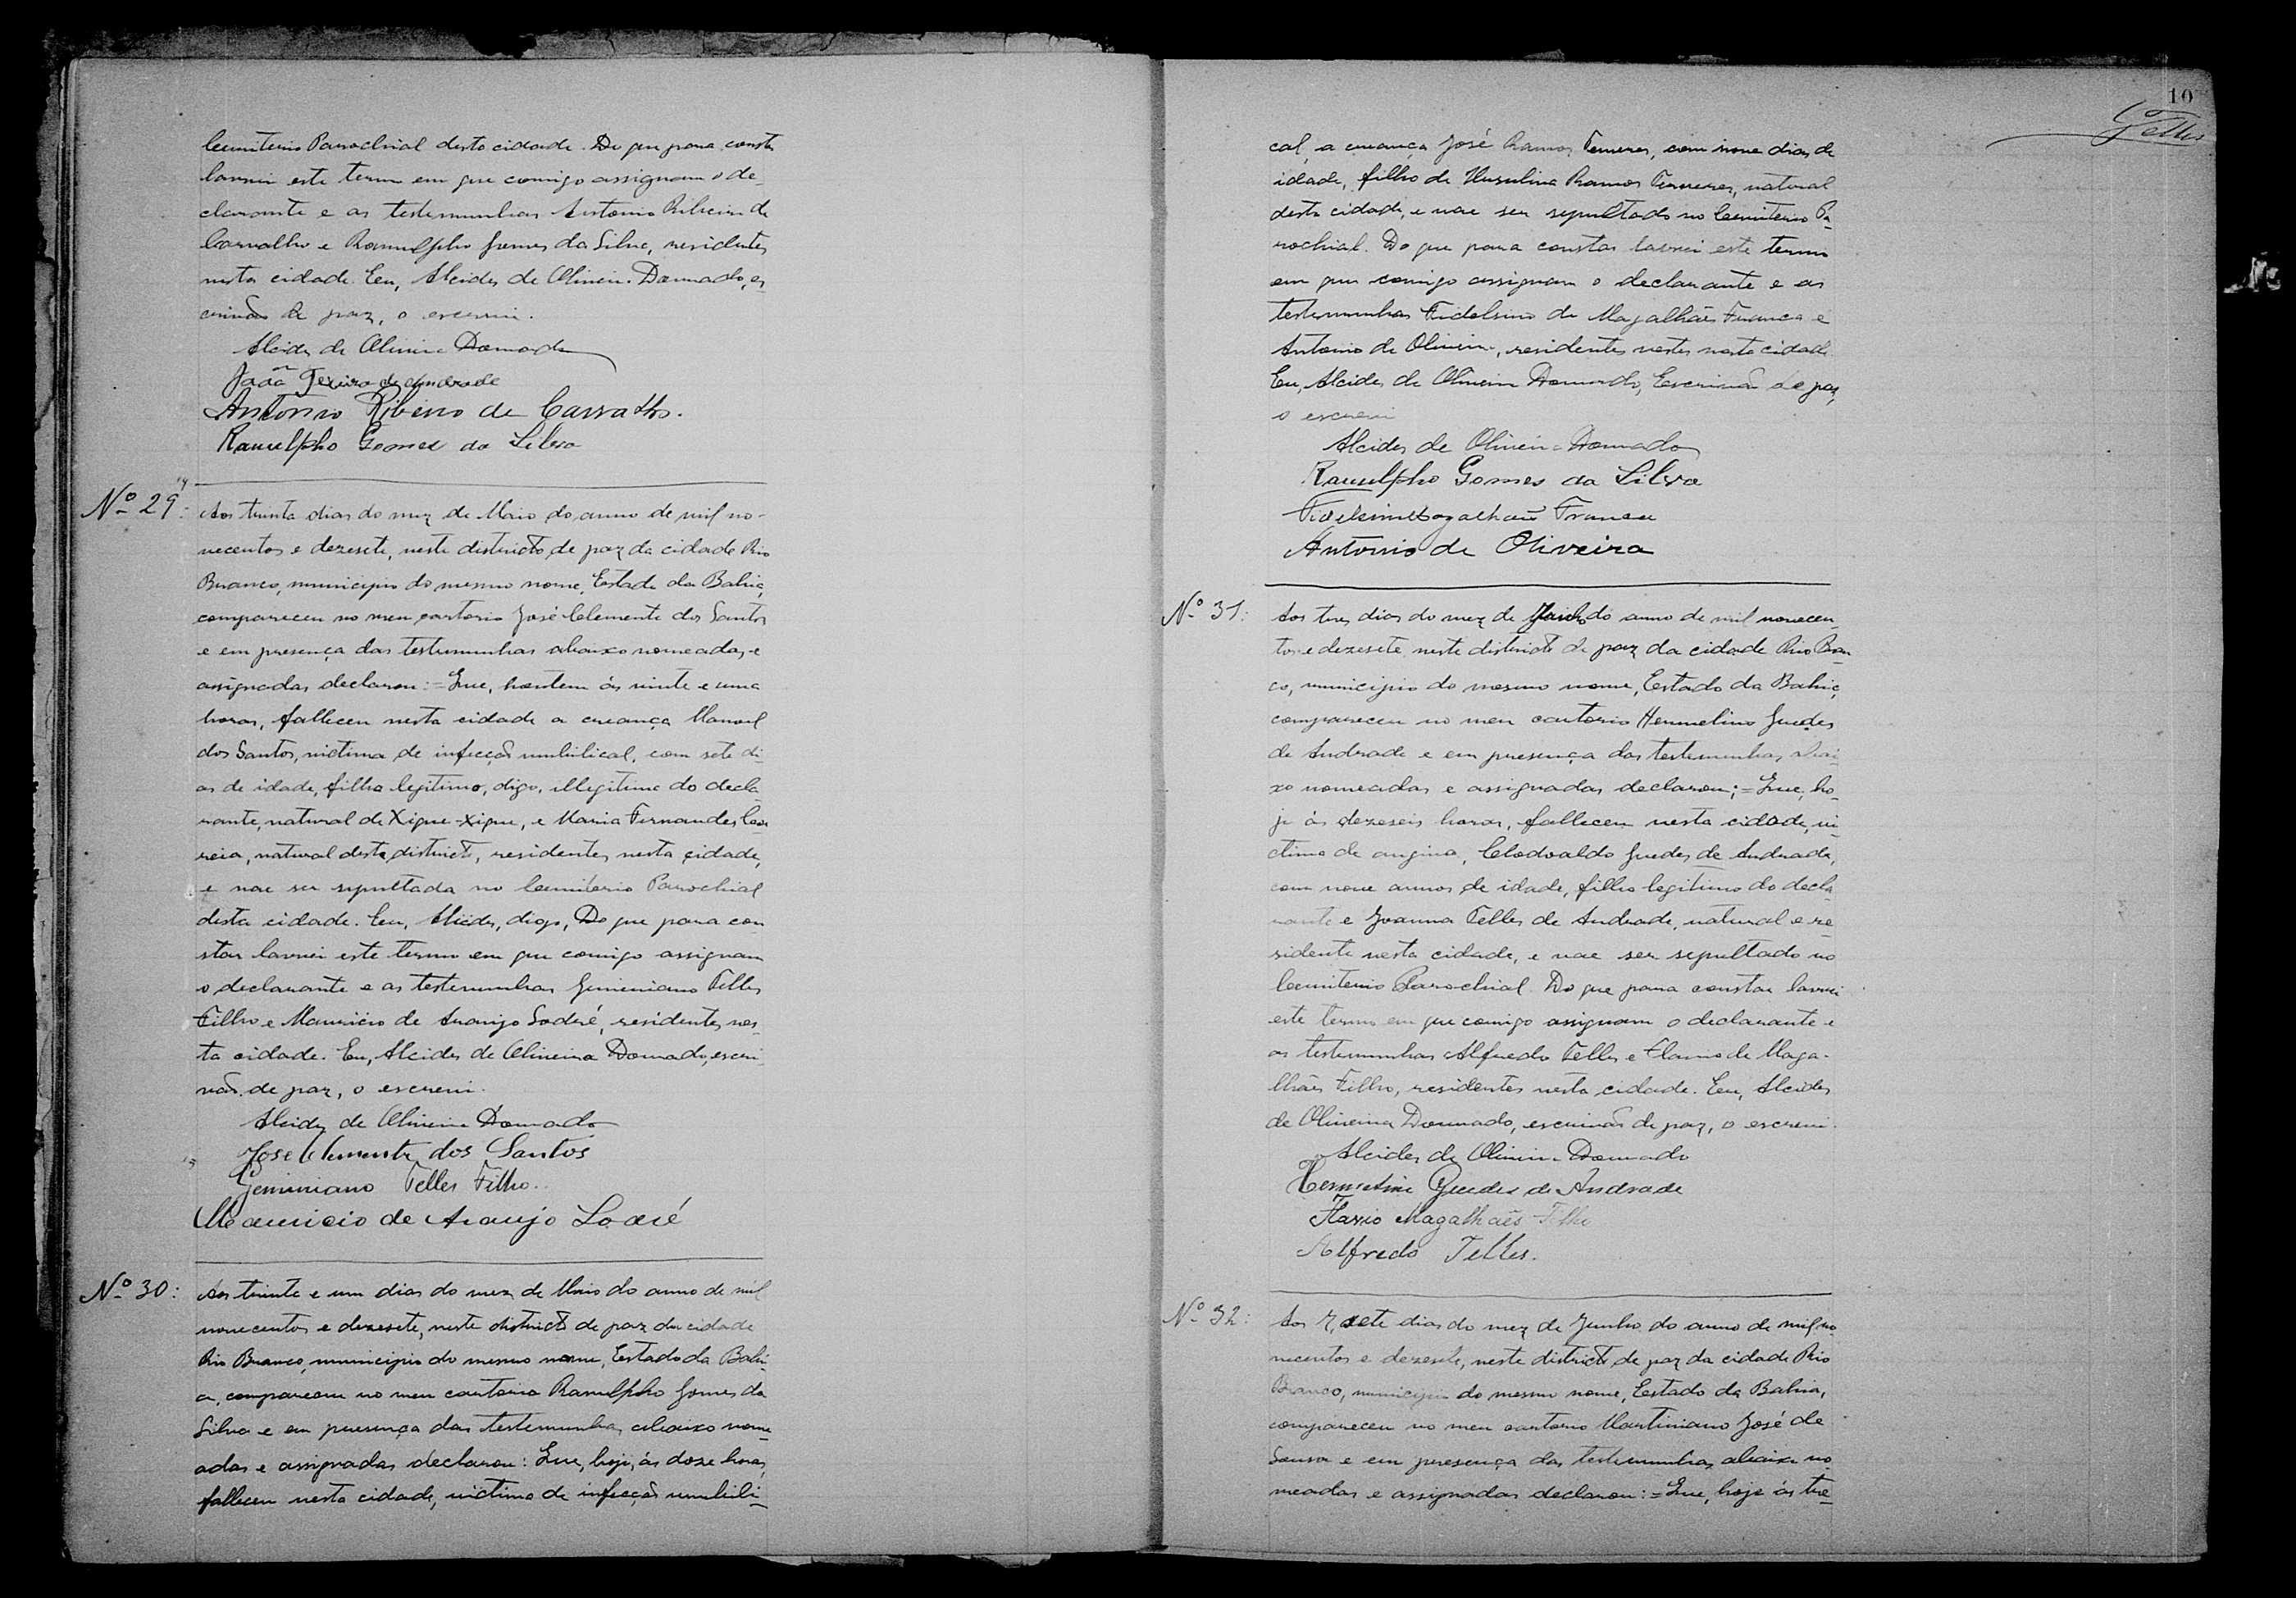 Cemiterio Parochial desta cidade. Do que para constar
lavrei este termo em que comigo assignam o de-
clarante e as testemunhas Antonio Ribeiro de
Carvalho e Ranulpho Gomes da Silva, residentes
nesta cidade. Eu, Alcides de Oliveira Dourado, es-
crivão de paz, o escrevi.
Alcides de Oliveira Dourado
João Texeira de Andrade
Antonio Ribeiro de Carvalho.
Ranulpho Gomes da Silva
Nº 29:
Aos trinta dias do mez de Maio do anno de mil no-
vecentos e dezesete, neste districto de paz da cidade Rio
Branco, municipio do mesmo nome, Estado da Bahia,
compareceu no meu cartorio José Clemente dos Santos
e em presença das testemunhas abaixo nomeadas e
assignadas declarou:=Que, hontem ás vinte e uma
horas, falleceu nesta cidade a creança Manoel
dos Santos, victima de infecção umbilical, com sete di-
as de idade, filho legitimo, digo, illegitimo do decla-
rante, natural de Xique-Xique, e Maria Fernandes
natural deste districto, residentes nesta cidade,
e vae ser sepultada no Cemiterio Parochial
desta cidade. Eu, Alcides, digo, Do que para con-
star lavrei este termo em que comigo assignam
o declarante e as testemunhas Geminiano Telles
Filho e Mauricio de Araujo Sodré, residentes nes-
ta cidade. Eu, Alcides de Oliveira Dourado, escri-
vão de paz, o escrevi.
Alcides de Oliveira Dourado
Jose Clemente dos Santos
Geminiano Telles Filho.
Mauricio de Araujo Sodré
Nº 30:
Aos trinta e um dias do mez de Maio do anno de mil
novecentos e dezesete, neste districto de paz da cidade
Rio Branco, municipio do mesmo nome, Estado da Bahi-
a, compareceu no meu cartorio Ranulpho Gomes da
Silva e em presença das testemunhas abaixo nome-
adas e assignadas declarou: Que, hoje, ás doze horas,
falleceu nesta cidade, victima de infecção umbili-
10
Telles
cal, a creança José Ramos Ferreres, com nove dias de
idade, filho de Ramos Ferreres, natural
desta cidade, e vae ser sepultado no Cemiterio Pa-
rochial. Do que para constar lavrei este termo
em que comigo assignam o declarante e as
testemunhas Fidelsino de Magalhães Franca e
Antonio de Oliveira, residentes nesta cidade
Eu, Alcides de Oliveira Dourado, Escrivão de paz,
o escrevi
Alcides de Oliveira Dourado
Ranulpho Gomes da Silva
Fidelsino Magalhães Franca
Antonio de Oliveira
Nº 31:
Aos tres dias do mez de Junho do anno de mil novecen-
tos e dezesete neste districto de paz da cidade Rio Bran-
co, municipio do mesmo nome, Estado da Bahia,
compareceu no meu cartorio Hermelino Guedes
de Andrade e em presença das testemunhas abai-
xo nomeadas e assignadas declarou;=Que, ho-
je ás dezeseis horas, falleceu nesta cidade, vi-
ctima de angina, Clodoaldo Guedes de Andrade,
com nove annos de idade, filho legitimo do decla-
rante e Joanna Telles de Andrade, natural e re-
sidente nesta cidade, e vae ser sepultado no
Cemiterio Parochial. Do que para constar lavrei
este termo em que comigo assignam o declarante e
as testemunhas Alfredo Telles e Flavio de Maga-
lhães Filho, residentes nesta cidade. Eu, Alcides
de Oliveira Dourado, escrivão de paz, o escrevi.
Alcides de Oliveira Dourado
Hermelino Guedes de Andrade
Flavio Magalhães Filho
Alfredo Telles.
Nº 32:
Aos 7, sete dias do mez de Junho do anno de mil no-
vecentos e dezesete, neste districto de paz da cidade Rio
Branco, municipio do mesmo nome, Estado da Bahia,
compareceu no meu cartorio Martiniano José de
Sousa e em presença das testemunhas abaixo no-
meadas e assignadas declarou:=Que, hoje ás tre-